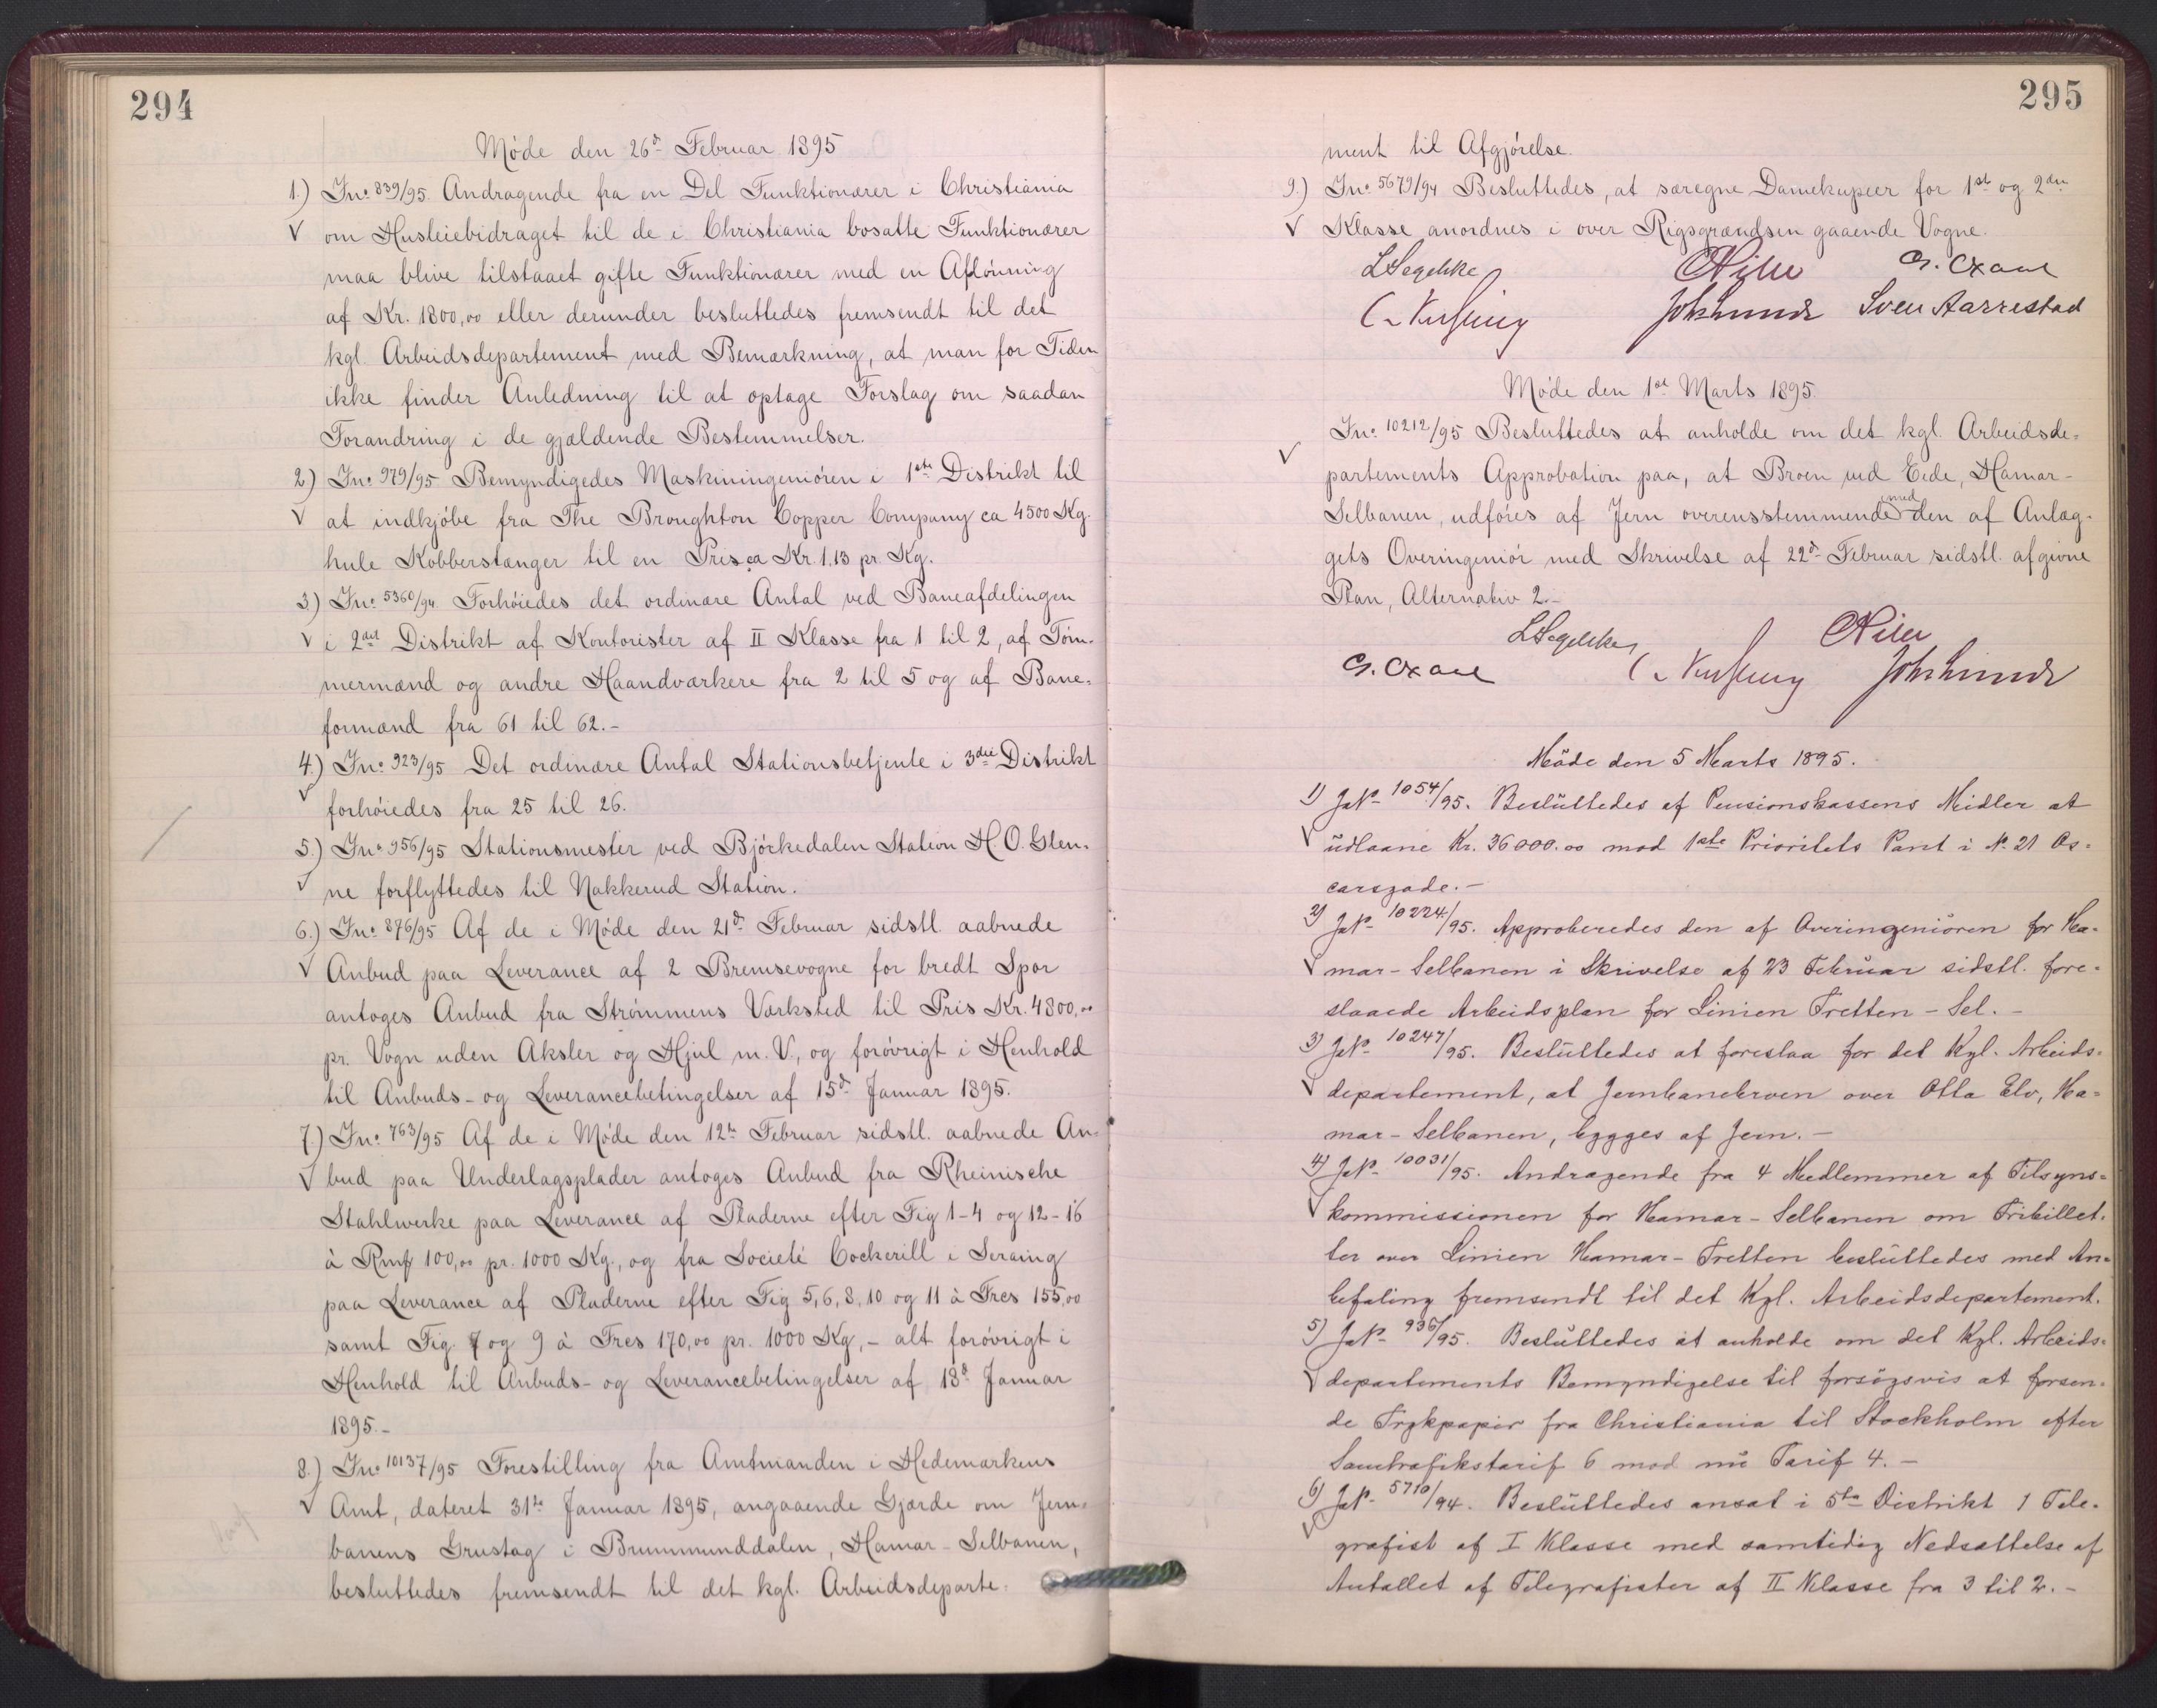 294
Møde den 26d Februar 1895
1.) Jn: 839/95. Andragende fra en Del Funktionærer i Christiania
om Husleiebidraget til de i Christiania bosatte Funktionærer
maa blive tilstaaet gifte Funktionærer med en Aflønning
af Kr. 1800,00 eller derunder besluttedes fremsendt til det
kgl. Arbeidsdepartement med Bemærkning, at man for Tiden
ikke finder Anledning til at optage Forslag om saadan
Forandring i de gjældende Bestemmelser.
2) Jn: 979/95 Bemyndigedes Maskiningeniøren i 1ste Distrikt til
at indkjøbe fra The Broughton Copper Company ca 4500 Kg.
hule Kobberstænger til en Pris ca Kr. 1,13 pr. Kg.
3) Jn: 5360/94. Forhøiedes det ordinære Antal ved Baneafdelingen
i 2det Distrikt af Kontorister af II Klasse fra 1 til 2, af Tøm-
mermænd og andre Haandværkere fra 2 til 5 og af Bane-
formænd fra 61 til 62.-
4.) Jn: 923/95 Det ordinære Antal Stationsbetjente i 3die Distrikt
forhøiedes fra 25 til 26.
5.) Jn: 956/95 Stationsmester ved Bjørkedalen Station H. O. Glen-
ne forflyttedes til Nakkerud Station.
6.) Jn: 876/95 Af de i Møde den 21d Februar sidstl. aabnede
Anbud paa Leverance af 2 Bremsevogne for bredt Spor
antoges Anbud fra Strømmens Værksted til Pris Kr. 4800,00
pr. Vogn uden Aksler og Hjul m. V., og forøvrigt i Henhold
til Anbuds- og Leverancebetingelser af 15d Januar 1895.
7.) Jn: 763/95 Af de i Møde den 12te Februar sidstl. aabnede An-
bud paa Underlagsplader antoges Anbud fra Rheinische
Stahlwerke paa Leverance af Pladerne efter Fig 1-4 og 12-16
à Rmf 100,00 pr. 1000 Kg., og fra Societé Cockerill i Seraing
paa Leverance af Pladerne efter Fig 5, 6, 8, 10 og 11 à Frcs 155,00
samt Fig. 7 og 9 à Frcs 170,00 pr. 1000 Kg, - alt forøvrigt i
Henhold til Anbuds- og Leverancebetingelser af 18d Januar
1895.-
8.) Jn: 10137/95 Forestilling fra Amtmanden i Hedemarkens
Amt, dateret 31te Januar 1895, angaaende Gjærde om Jern-
banens Grustag i Brummunddalen, Hamar-Selbanen,
besluttedes fremsendt til det kgl. Arbeidsdeparte-
295
ment til Afgjørelse.
9.) Jn: 5679/94 Besluttedes, at særegne Damekupeer for 1ste og 2den
Klasse anordnes i over Rigsgrændsen gaaende Vogne.
LSegelcke
G. Oxaal
Sven Aarrestad
Møde den 1ste Marts 1895.
Jn: 10212/95 Besluttedes at anholde om det kgl. Arbeidsde-
partements Approbation paa, at Broen ved Eide, Hamar-
Selbanen, udføres af Jern overensstemmende med den af Anlæg-
gets Overingeniør med Skrivelse af 22d Februar sidstl. afgivne
Plan, Alternativ 2.-
LSegelcke
G. Oxaal
Møde den 5 Marts 1895.
1) JN. 1054/95. Besluttedes af Pensionskassens Midler at
udlaane Kr. 36000.00 mod 1ste Prioritets Pant i N. 21 Os-
carsgade.-
2) JN. 10224/95. Approberedes den af Overingeniøren for Ha-
mar-Selbanen i Skrivelse af 23 Februar sidstl. fore-
slaaede Arbeidsplan for Linien Tretten-Sel.-
3) JN. 10247/95. Besluttedes at foreslaa for det Kgl. Arbeids-
departement, at Jernbanebroen over Otta Elv, Ha-
mar-Selbanen, bygges af Jern.-
4) JN. 10031/95. Andragende fra 4 Medlemmer af Tilsyns-
kommissionen for Hamar-Selbanen om Fribillet-
ter over Linien Hamar-Tretten besluttedes med An-
befaling fremsendt til det Kgl. Arbeidsdepartement.
5) JN. 936/95. Besluttedes at anholde om det Kgl. Arbeids-
departements Bemyndigelse til forsøgsvis at forsen-
de Trykpapir fra Christiania til Stockholm efter
Samtrafikstarif 6 mod nu Tarif 4.-
6) JN. 5710/94. Besluttedes ansat i 5te Distrikt 1 Tele-
grafist af I Klasse med samtidig Nedsættelse af
Antallet af Telegrafister af II Klasse fra 3 til 2.-